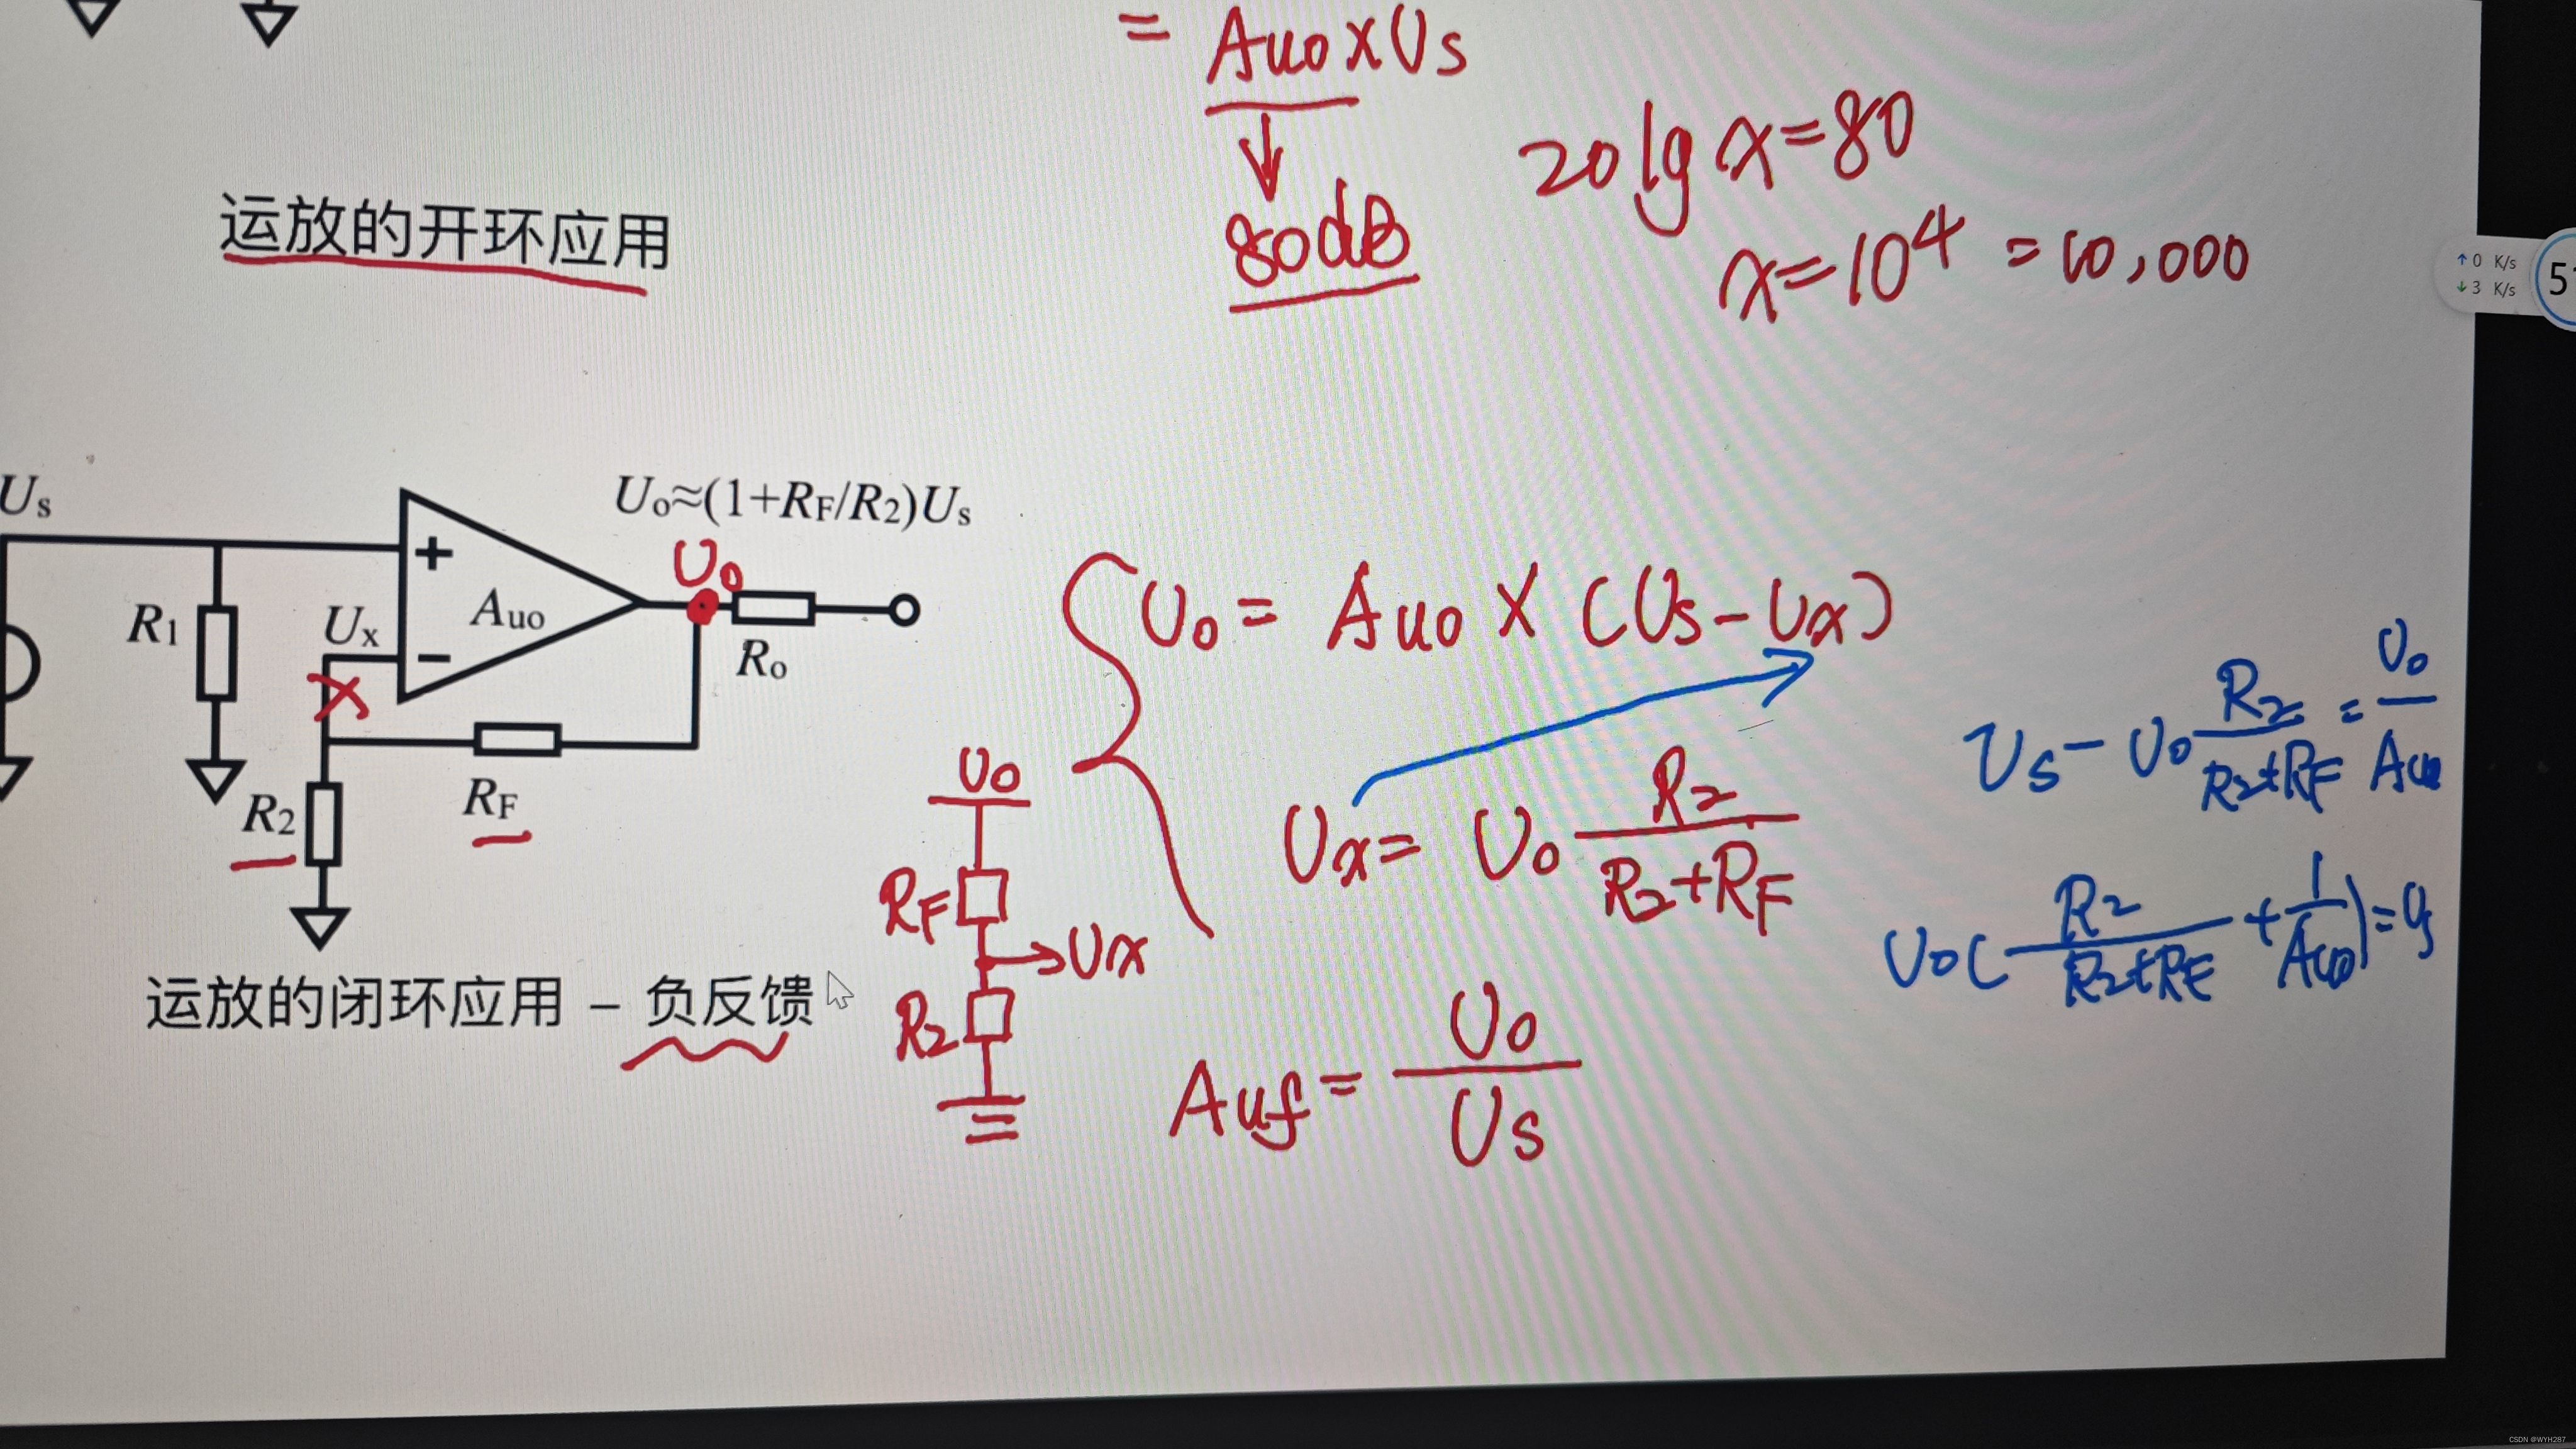 = Auo×Us
80dB
20lg x=80
x=10⁴ = 10,000
运放的开环应用
↑0 K/s
↓3 K/s
Us
Uo≈(1+RF/R2)Us
Uo
+
R1
Ux
Auo
−
Ro
x
R2
RF
运放的闭环应用 – 负反馈
Uo = Auo × (Us-Ux)
Ux = Uo R2/(R2+RF)
Uo
RF
→Ux
R2
Auf = Uo/Us
Us - Uo R2/(R2+RF) = Uo/Auo
Uo( R2/(R2+RF) + 1/Auo) = Us
CSDN @WYH287